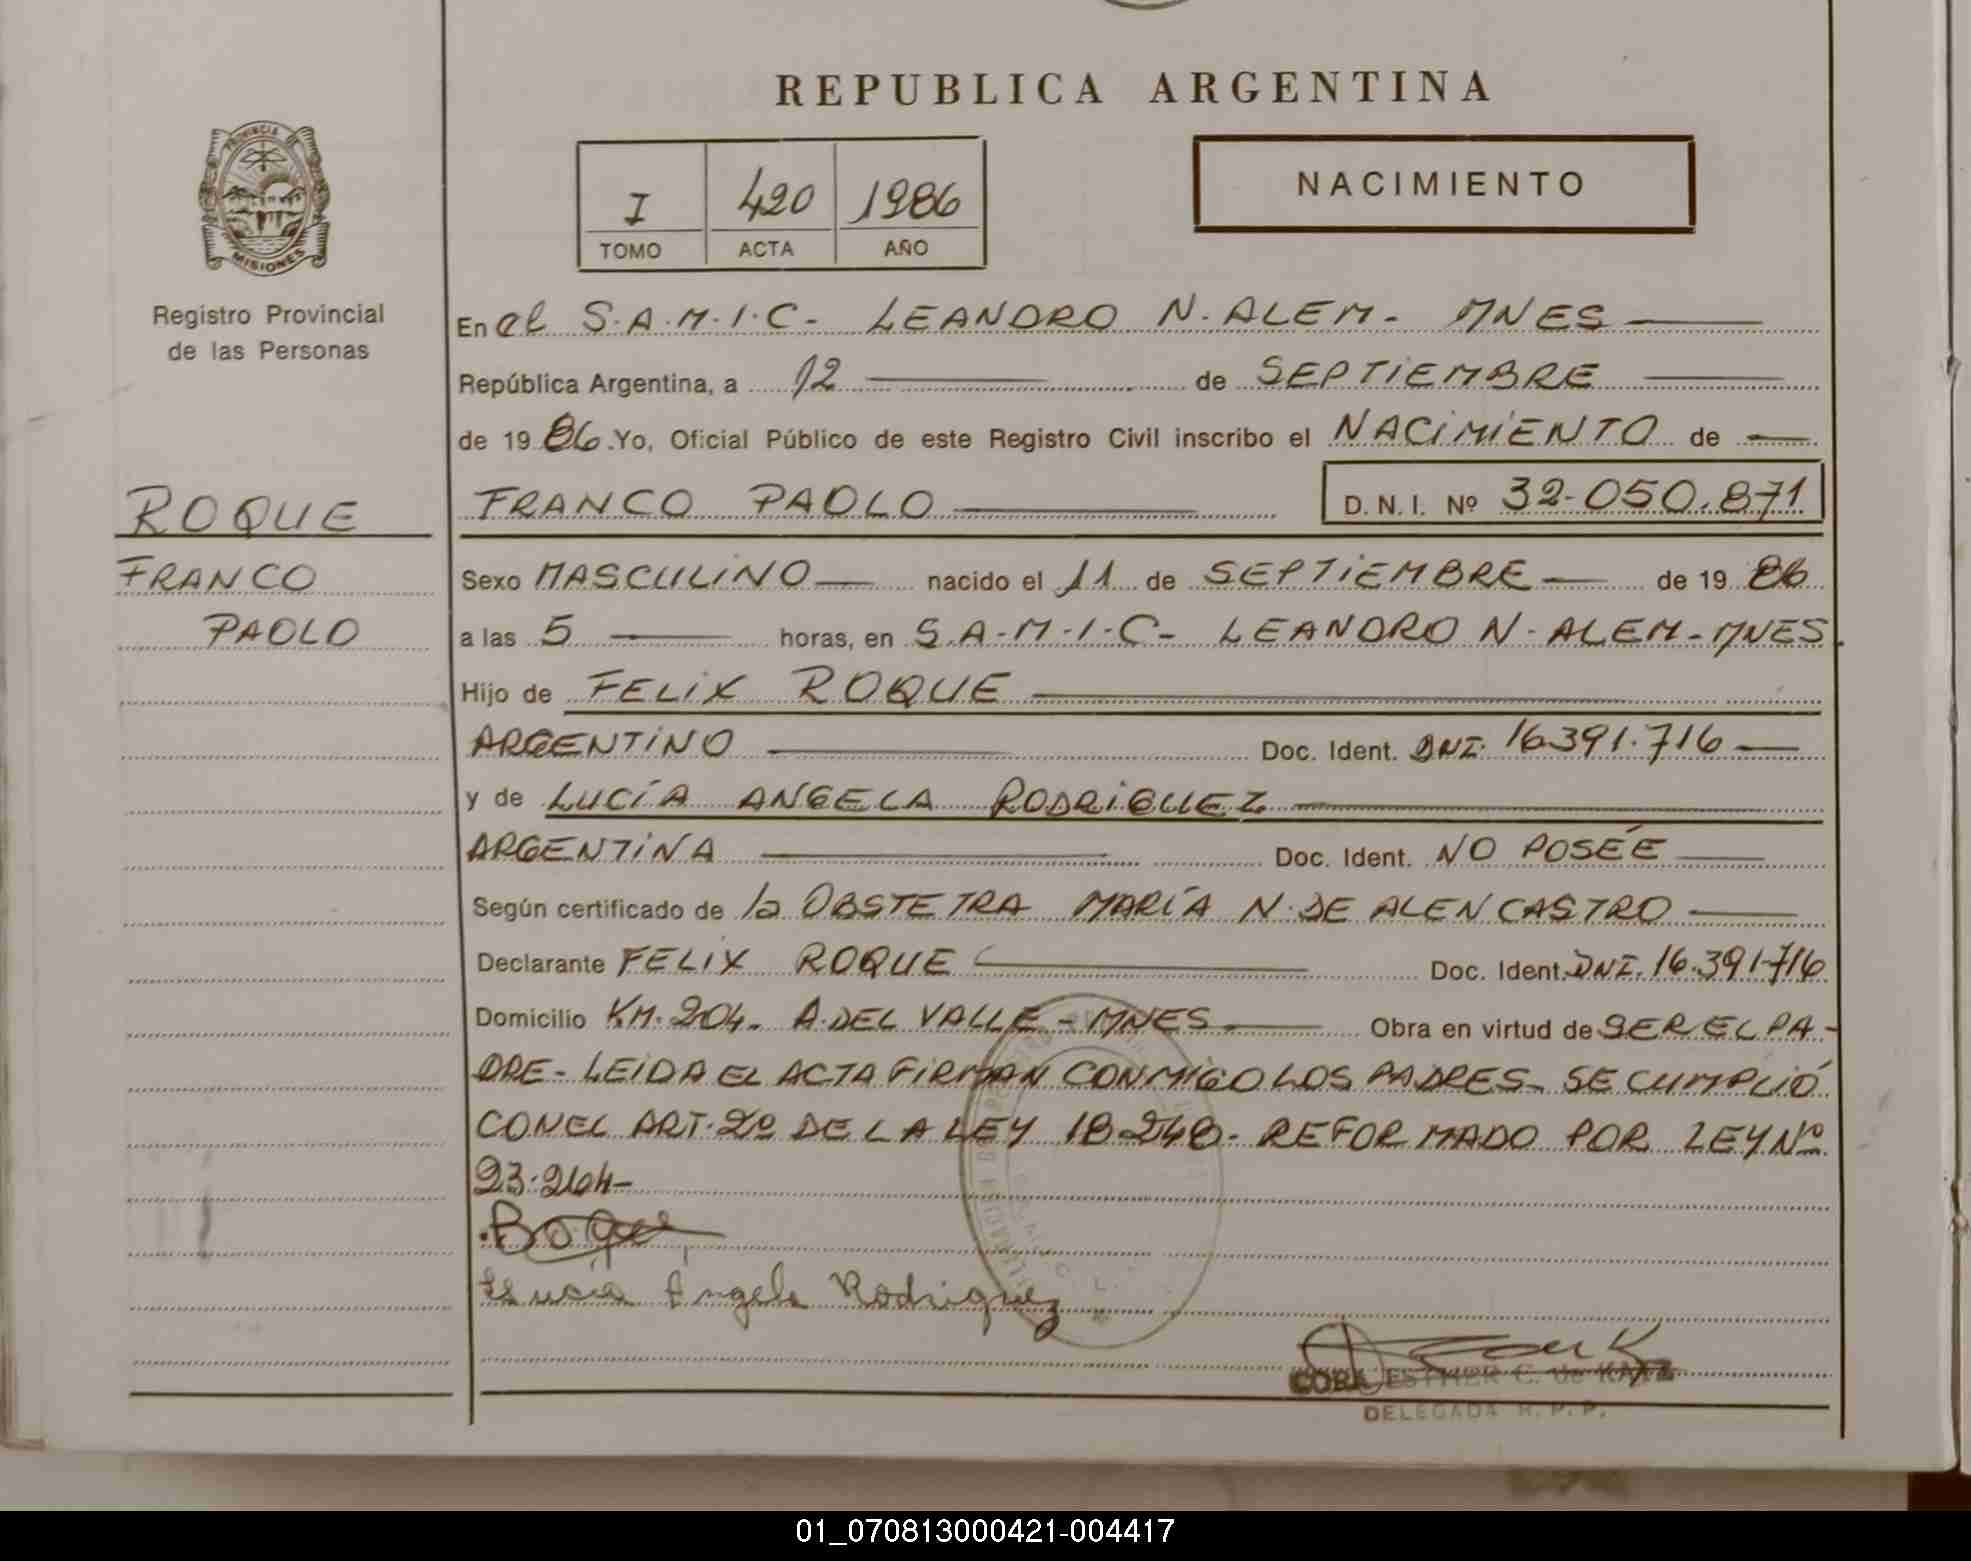 REPUBLICA ARGENTINA
PROVINCIA DE
MISIONES
Registro Provincial
de las Personas
I 420 1986
TOMO ACTA AÑO
NACIMIENTO
En el S.A.M.I.C- LEANDRO N. ALEM- MNES
República Argentina, a 12 de SEPTIEMBRE
de 1986 Yo, Oficial Público de este Registro Civil inscribo el NACIMIENTO de
ROQUE
FRANCO PAOLO D. N. I. Nº 32-050.871
FRANCO
PAOLO
Sexo MASCULINO nacido el 11 de SEPTIEMBRE de 1986
a las 5 horas, en S.A-M-I-C- LEANDRO N- ALEM-MNES
Hijo de FELIX ROQUE
ARGENTINO Doc. Ident. DNI. 16391.716
y de LUCÍA ANGELA RODRIGUEZ
ARGENTINA Doc. Ident. NO POSÉE
Según certificado de la OBSTETRA MARÍA N. DE ALENCASTRO
Declarante FELIX ROQUE Doc. Ident. DNI. 16.391-716
Domicilio KM. 204. A. DEL VALLE - MNES Obra en virtud de SER EL PA-
DRE- LEIDA EL ACTA FIRMAN CONMIGO LOS PADRES- SE CUMPLIÓ
CON EL ART. 2º DE LA LEY 18-248- REFORMADO POR LEY Nº
23.264-
Roque
Lucia Angela Rodriguez
CORA ESTHER C. de KATZ
DELEGADA R. P. P.
01_070813000421-004417